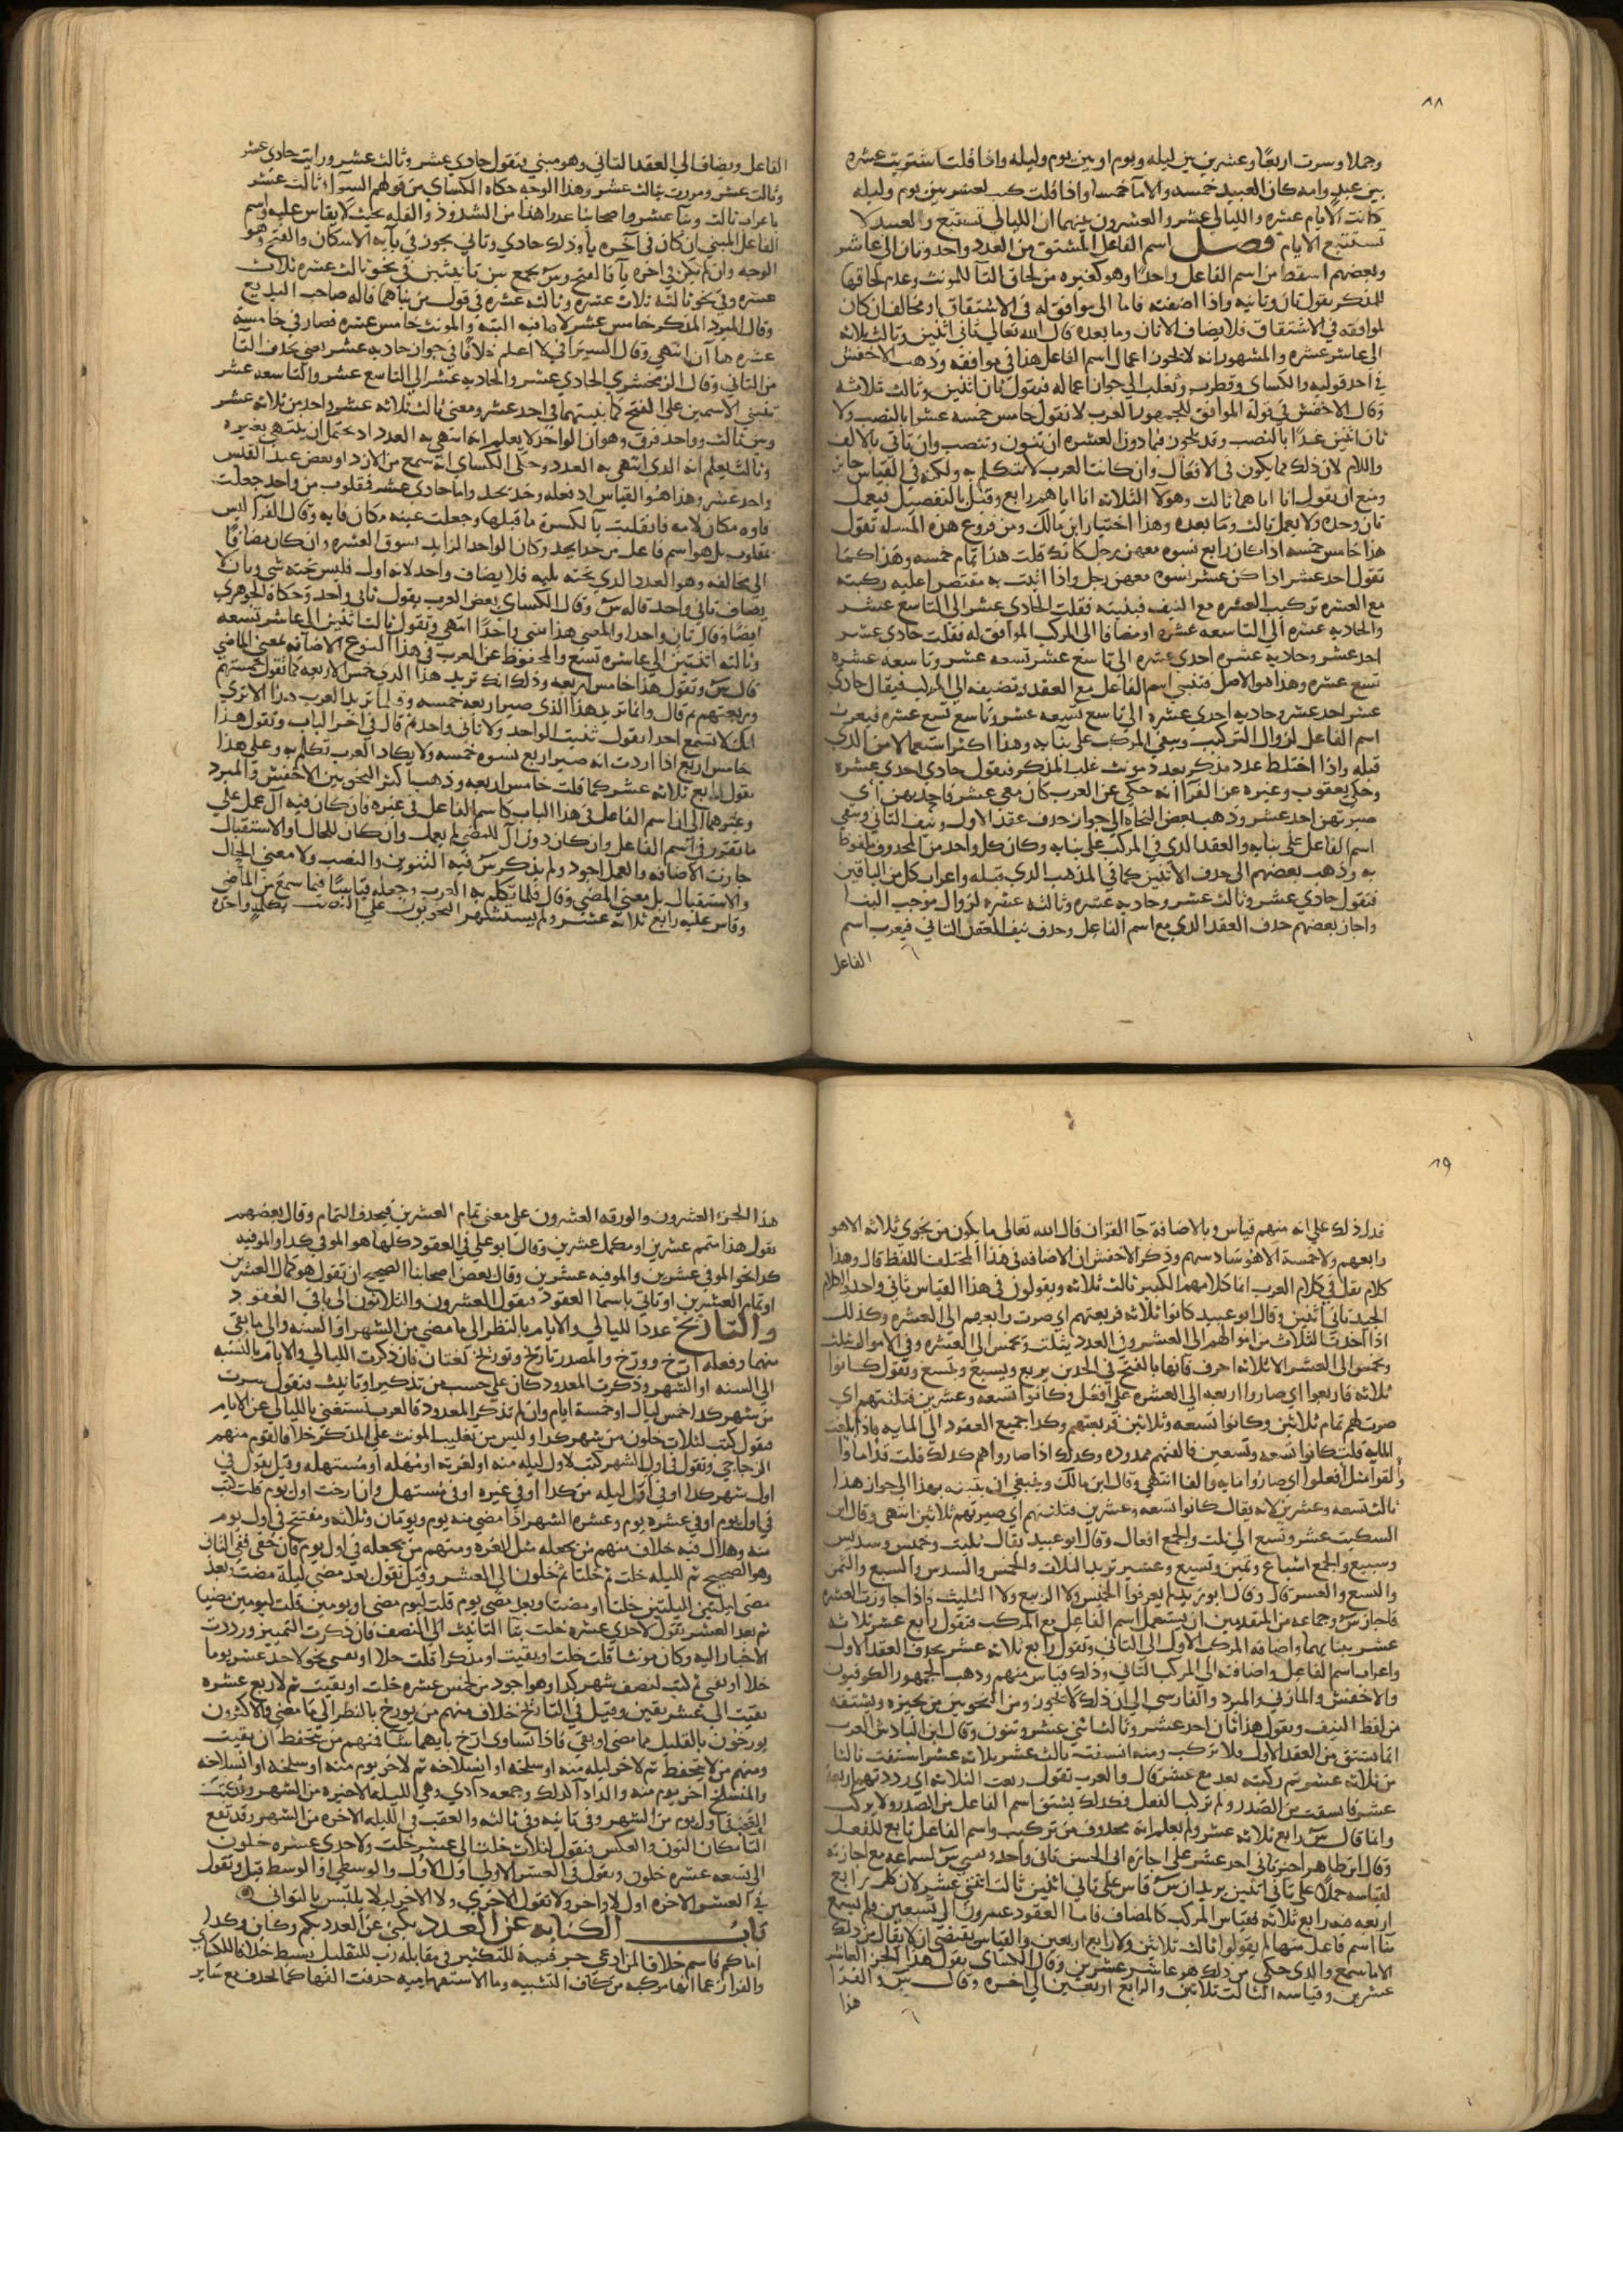 ٨٨
وجملا وسرت اربعا وعشرين بين ليله ويوم او بين يوم وليله واذا قلت اشتريت عشره
بين عبد وامه كان العبيد خمسه والاما خمسا واذا قلت كتب لعشر بين يوم وليله
كانت الايام عشره والليالي عشر والعشرون بينهما ان الليالي تستتبع والعبيد لا
تستتبع الايام فصل اسم الفاعل المشتق من العدد واحد وثان الي عاشر
وبعضهم اسقط من اسم الفاعل واحدا وهو كغيره من لحاق التا للمونث وعدم لحاقها
للمذكر يقول ثان وثانيه واذا اضفته فاما الي موافق له في الاشتقاق او مخالف ان كان
لموافقه في الاشتقاق فلا يضاف الا ثان وما بعده قال الله تعالي ثاني اثنين وثالث ثلاثه
الي عاشر عشره والمشهور انه لا يجوز اعمال اسم الفاعل هذا في موافقه وذهب الاخفش
في احد قوليه والكساي وقطرب وثعلب الي جواز اعماله فتقول ثان اثنين وثالث ثلاثه
وقال الاخفش في قوله الموافق للجمهور العرب لا تقول خامس خمسه عشرا بالنصب ولا
ثان اثنين غدا بالنصب وقد يجوز فيما دون العشره ان تنون وتنصب وان تاتي بالالف
واللام لان ذلك مما يكون في الافعال وان كانت العرب لا تتكلم به ولكنه في القياس جايز
ومنع ان يقول انا اياهما ثالث وهولا الثلاثه انا اياهم رابع وقيل بالتفصيل فيعمل
ثان وحده ولا يعمل ثالث وما بعده وهذا اختيار ابن مالك ومن فروع هذه المسله تقول
هذا خامس خمسه اذا كان رابع نسوه معهن رجل كانك قلت هذا تمام خمسه وهذا كما
تقول احد عشر اذا كن عشر نسوه معهن رجل واذا اتيت به مقتصرا عليه ركبته
مع العشره تركيب العشره مع النيف فبنيته فقلت الحادي عشر الي التاسع عشر
والحاديه عشره الي التاسعه عشره او مضافا الي المركب الموافق له فقلت حادي عشر
احد عشر وحاديه عشره احدي عشره الي تاسع عشر تسعه عشر وتاسعه عشره
تسع عشره وهذا هو الاصل فتبني اسم الفاعل مع العقد وتضيفه الي المركب فيقال حادي
عشر احد عشر وحاديه احدي عشره الي تاسع تسعه عشر وتاسع تسع عشره فيعرب
اسم الفاعل لزوال التركيب وبقي المركب علي بنايه وهذا اكثر استعمالا من الذي
قبله واذا اختلط عدد مذكر بعدد مونث غلب المذكر فيقول حادي احدي عشره
وحكي يعقوب وغيره عن الفرا انه حكي عن العرب كان معي عشر فاحديهن اي
صيرتهن احد عشر وذهب بعض النحاه الي جواز حذف عقد الاول ونيف الثاني وبقي
اسم الفاعل علي بنايه والعقد الذي في المركب علي بنايه وكان كل واحد من المحذوف ملفوظا
به وذهب بعضهم الي حذف الاثنين كما في المذهب الذي قبله واعراب كل من الباقيين
فتقول حادي عشر وثالث عشر وحاديه عشره وثالثه عشره لزوال موجب البنا
واجاز بعضهم حذف العقد الذي مع اسم الفاعل وحذف نيف العقد الثاني فيعرب اسم
الفاعل
الفاعل ويضاف الي العقد الثاني وهو مبني فتقول حادي عشر وثالث عشر ورايت حادي عشر
وثالث عشر ومررت بثالث عشر وهذا الوجه حكاه الكساي من قولهم السوا ثالث عشر
باعراب ثالث وبنا عشر واصحابنا عدوا هذا من الشذوذ والقله بحيث لا يقاس عليه واسم
الفاعل المبني ان كان في اخره يا وذلك حادي وثاني يجوز في يايه الاسكان والفتح وهو
الوجه وان لم يكن في اخره يا فالفتح وس يجمع بين تانيثين في نحو ثالث عشره ثلاث
عشره وفي نحو ثالثه ثلاث عشره وثالثه عشره في قول من بناهما قاله صاحب البديع
وقال المبرد المذكر خامس عشر لاما فيه البته والمونث خامس عشره فصار في خامسه
عشره هاآن انتهي وقال السيرافي لا اعلم خلافا في جواز حاديه عشر يعني بحذف التا
من الثاني وقال الزمخشري الحادي عشر والحاديه عشر الي التاسع عشر والتاسعه عشر
تبني الاسمين علي الفتح كما بنيتهما في احد عشر ومعني ثالث ثلاثه عشر واحد من ثلاثه عشر
وبين ثالث وواحد فرق وهو ان الواحد لا يعلم انه انتهي به العدد اذ يحتمل ان ينتهي بغيره
وثالث يعلم انه الذي انتهي به العدد وحكي الكساي انه سمع من الازد او بعض عبد القيس
واحد عشر وهذا هو القياس اذ فعله وحد يحد واما حادي عشر فمقلوب من واحد جعلت
فاوه مكان لامه فانقلبت يا لكسرة ما قبلها وجعلت عينه مكان فايه وقال الفرا ليس
بمقلوب بل هو اسم فاعل من حدا يحدو كان الواحد الزايد يسوق العشره وان كان مضافا
الي مخالفه وهو العدد الذي تحته يليه فلا يضاف واحد لانه اول فليس تحته شي وثان لا
يضاف ثاني واحد قاله س وقال الكساي بعض العرب يقول ثاني واحد وحكاه الجوهري
ايضا وقال ثان واحدا والمعني هذا ثني واحدا انتهي وتقول ثالث اثنين الي عاشر تسعه
وثالثه اثنتين الي عاشره تسع والمحفوظ عن العرب في هذا النوع الاضافه بمعني الماضي
قال س وتقول هذا خامس اربعه وذلك انك تريد هذا الذي خمس الاربعه كما تقول خمستهم
وربعتهم ثم قال وانما تريد هذا الذي صير اربعه خمسه وقلما تريد العرب هذا الا تري
انك لا تسمع احدا يقول ثنيت الواحد ولا ثاني واحد ثم قال في اخر الباب وتقول هذا
خامس اربع اذا اردت انه صير اربع نسوه خمسه ولا يكاد العرب تكلم به وعلي هذا
تقول رابع ثلاثه عشر كما قلت خامس اربعه وذهب اكثر النحويين الاخفش والمبرد
وغيرهما الي ان اسم الفاعل في هذا الباب كاسم الفاعل في غيره فان كان فيه ال عمل علي
ما تقرر في اسم الفاعل وان كان دون ال للمضي لم يعمل وان كان للحال او الاستقبال
جازت الاضافه والعمل اجود ولم يذكر س فيه التنوين والنصب ولا معني الحال
والاستقبال بل معني المضي وقال قلما تكلم به العرب وجعله قياسا فيما سمع من الماضي
وقاس عليه رابع ثلاثه عشر ولم يستشهر النحويون علي
٨٩
فدل ذلك علي انه منهم قياس وبالاضافة جا القران قال الله تعالي ما يكون من نجوي ثلاثه الا هو
رابعهم ولا خمسة الا هو سادسهم وذكر الاخفش ان الاضافه في هذا المختلف اللفظ قال وهذا
كلام يقل في كلام العرب انما كلامهم الكثير ثالث ثلاثه ويقولون في هذا القياس ثاني واحد والكلام
الجيد ثاني اثنين وقال ابو عبيد كانوا ثلاثه فربعتهم اي صرت رابعهم الي العشره وكذلك
اذا اخذت الثلاث من اموالهم الي العشر وفي العدد يثلث ويخمس الي العشره وفي الاموال يثلث
ويخمس الي العشر الا ثلاثه احرف فانها بالفتح في الحدين يربع ويسبع ويتسع وتقول كانوا
ثلاثه فاربعوا اي صاروا اربعه الي العشره علي افعل وكانوا تسعه وعشرين فثلثتهم اي
صرت لهم تمام ثلاثين وكانوا تسعه وثلاثين فربعتهم وكذا جميع العقود الي المايه فاذا بلغت
المايه قلت كانوا تسعه وتسعين فالفتهم ممدوده وكذلك اذا صاروا هم كذلك قلت قد اماوا
والفوا مثل افعلوا اي صاروا مايه والفا انتهي وقال ابن مالك وينبغي ان يتنبه بهذا الي جواز هذا
ثالث تسعه وعشرين لانه يقال كانوا تسعه وعشرين فثلثتهم اي صيرتهم ثلاثين انتهي وقال ابن
السكيت عشر وتسع الي ثلث والجمع افعال وقال ابو عبيد يقال ثليث وخميس وسديس
وسبيع والجمع اسباع وثمين وتسيع وعشير تريد الثلاث والخمس والسدس والسبع والثمن
والتسع والعشر قال وقال ابو زيد لم يعرفوا الخميس ولا الربيع ولا الثليث واذا جاوزت العشره
فاجاز س وجماعه من المتقدمين ان يستعمل اسم الفاعل مع المركب فتقول رابع عشر ثلاثه
عشر ببنايهما واضافه المركب الاول الي الثاني وتقول رابع ثلاثه عشر بحذف العقد الاول
واعراب اسم الفاعل واضافته الي المركب الثاني وذلك قياس منهم وذهب الجمهور الكوفيون
والاخفش والمازني والمبرد والفارسي الي ان ذلك لا يجوز ومن النحويين من يجيزه ويشتقه
من لفظ النيف ويقول هذا ثان احد عشر وثالث اثني عشر وتنون وقال ابن الباذش العرب
انما تشتق من العقد الاول فلا تركب ومنه اشتقت ثالث عشر ثلاثه عشر اشتقت ثالثا
من ثلاثه عشر ثم ركبته بعد مع عشر قال والعرب تقول ربعت الثلاثه اي رددتهم اربعه
عشر فاشتقت من الصدر ولم تركب الفعل فكذلك يشتق اسم الفاعل من الصدر ولا يركب
وانما قال س رابع ثلاثه عشر ولم يعلم انه محذوف من تركيب واسم الفاعل تابع للفعل
وقال ابن طاهر اجيز ثاني احد عشر علي اجازه ابي الحسن ثاني واحد وس لسماعه مع اجازته
لقياسه حملا علي ثاني اثنين يريد ان س قاس علي ثاني اثنين ثالث اثني عشر لان كلم رابع
اربعه ضد رابع ثلاثه فقياس المركب كالمضاف فاما العقود عشرون الي تسعين فلم يسمع
بنا اسم فاعل منها لم يقولوا ثالث ثلاثين ولا رابع اربعين والقياس يقتضي ان لا يقال من ذلك
الا ما سمع والذي حكي من ذلك هو عاشر عشرين وقال الكساي يقول هذا الجز العاشر
عشرين وقياسه الثالث ثلاثين والرابع اربعين الي اخره وقال س والفرا
هذا
هذا الجزء العشرون والورقه العشرون علي معني تمام العشرين فيحذف التمام وقال بعضهم
تقول هذا متمم عشرين او مكمل عشرين وقال ابو علي في العقود كلها هو الموفي كذا والموفيه
كذا نحو الموفي عشرين والموفيه عشرين وقال بعض اصحابنا الصحيح ان تقول هو كمال العشرين
او تمام العشرين او تاتي باسما العقود فتقول العشرون والثلاثون الي باقي العقود
والتاريخ عدد الليالي والايام بالنظر الي ما مضي من الشهر او السنه والي ما بقي
منهما وفعله ارخ وورخ والمصدر تاريخ وتوريخ لغتان فان ذكرت الليالي والايام بالنسبه
الي السنه او الشهر وذكرت المعدود كان علي حسب من تذكير او تانيث فتقول سرت
من شهر كذا خمس ليال او خمسة ايام وان لم تذكر المعدود فالعرب تستغني بالليالي عن الايام
فتقول كتب لثلاث خلون من شهر كذا وليس من تغليب المونث علي المذكر خلافا لقوم منهم
الزجاجي وتقول في اول الشهر كتب لاول ليله منه او لغرته او مهله او مستهله وقيل يقول في
اول شهر كذا او في اول ليله من كذا او في غيره او في مستهل وان ارخت اول يوم قلت كتب
في اول يوم او في عشره يوم وعشره الشهر اذا مضي منه يوم ويومان وثلاثه ومفتتح في اول يوم
منه وهلال فيه خلاف منهم من يجعله مثل الغره ومنهم من يجعله في اول يوم فان خفي ففي الثاني
وهو الصحيح ثم لليله خلت ثم خلتا ثم خلون الي العشر وقيل تقول بعد مضي ليلة مضت بعد
مضي ليلتين لليلتين خلتا او مضتا وبعد مضي يوم قلت ليوم مضي او يومين قلت ليومين مضيا
ثم بعد العشر تقول لاحدي عشره خلت بتا التانيث الي النصف فان ذكرت التمييز ورددت
الاخبار اليه وكان مونثا قلت خلت او بقيت او مذكرا قلت خلا او بقي نحو لاحد عشر يوما
خلا او بقي ثم كتب لنصف شهر كذا وهو اجود من لخمس عشره خلت او بقيت ثم لاربع عشره
بقيت الي عشر بقين وقيل في التاريخ خلاف منهم من يورخ بالنظر الي ما مضي والاكثرون
يورخون بالقليل مما مضي او بقي فاذا تساوي ارخ بايهما شا فمنهم من يتحفظ ان بقيت
ومنهم من لا يتحفظ ثم لاخر ليله منه او سلخه او انسلاخه ثم لاخر يوم منه او سلخه او انسلاخه
والمنسلخ اخر يوم منه والداد آ كذلك وجمعه دادي وهي الليله الاخيره من الشهر
في اول يوم من الشهر وفي ثانيه وفي ثالثه والعقب في الليله الاخره من الشهر وقد تقع
التا مكان النون والعكس وتقول لثلاث خلت الي عشر خلت ولاحدي عشره خلون
الي تسعه عشره خلون وتقول في العشر الاولي اول الاول والوسطي او الوسط قيل وتقول
في العشر الاخره اول الاواخر ولا تقول الاخري ولا الاخر لئلا يلتبس بالثواني
باب الكنايه عن العدد يكني عن العدد بكم وكان وكذا
اما كم فاسم خلافا لمن ادعي حرفيته للتكثير في مقابله رب للتقليل بسيط خلافا للكساي
والفرا زعما انها مركبه من كاف التشبيه وما الاستفهاميه حذفت الفها كما تحذف مع ساير